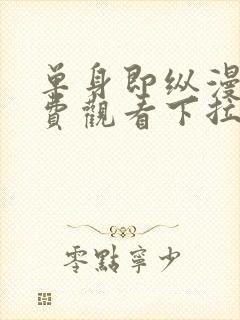 单身即纵漫
费觀看下拉
零點寧少